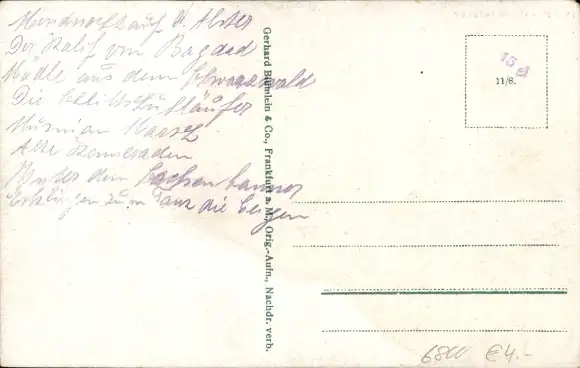 Mondnacht auf d. Alster
Der Kalif von Bagdad
Mädle aus dem Schwarzwald
Die Schlittschuhläufer
Alte Kameraden
Unter dem Sachenbanner
Erklingen zum Tanz die Geigen
Gerhard Blümlein & Co., Frankfurt a. M., Orig.-Aufn., Nachdr. verb.
15 d
11/8.
6800 €4.-